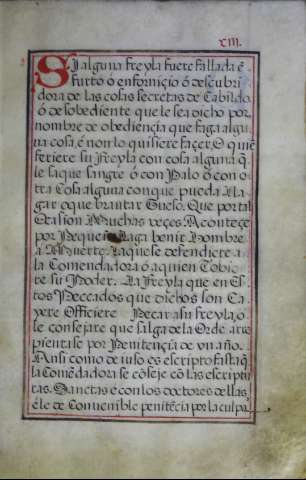 XIII.
Si alguna freyla fuere fallada ē
furto ó enfornicio ó descubri
dora de las cosas secretas de Cabildo
ó desobediente que le sea dicho por
nombre de obediencia que faga algu
na cosa, é non lo quisiere façer, O quie
feriere su Freyla con cosa alguna q̄
le saque sangre ó con Palo ó con o
tra Cosa alguna con que pueda lla
gar o que brantar Gueso, Que por tal
Ocasion Muchas veçes Aconteçe
por Pequeña llaga benir hombre
a Muerte, la que se defendiere a
la Comendadora ó a quien Tobie
re su Poder. La Freyla que en Es
tos Peccados que dichos son Ca
yere Officiere Pecar a su freyla, ó
le consejare que salga de la Orde
pienta se por Penitençia de vn año.
Ansi como de iuso es escripto fasta q̄
la Comēdadora se cōseje cō las escriptu
ras. Sanctas é con los doctores dellas,
é le de Convenible penitēcia por la culpa.